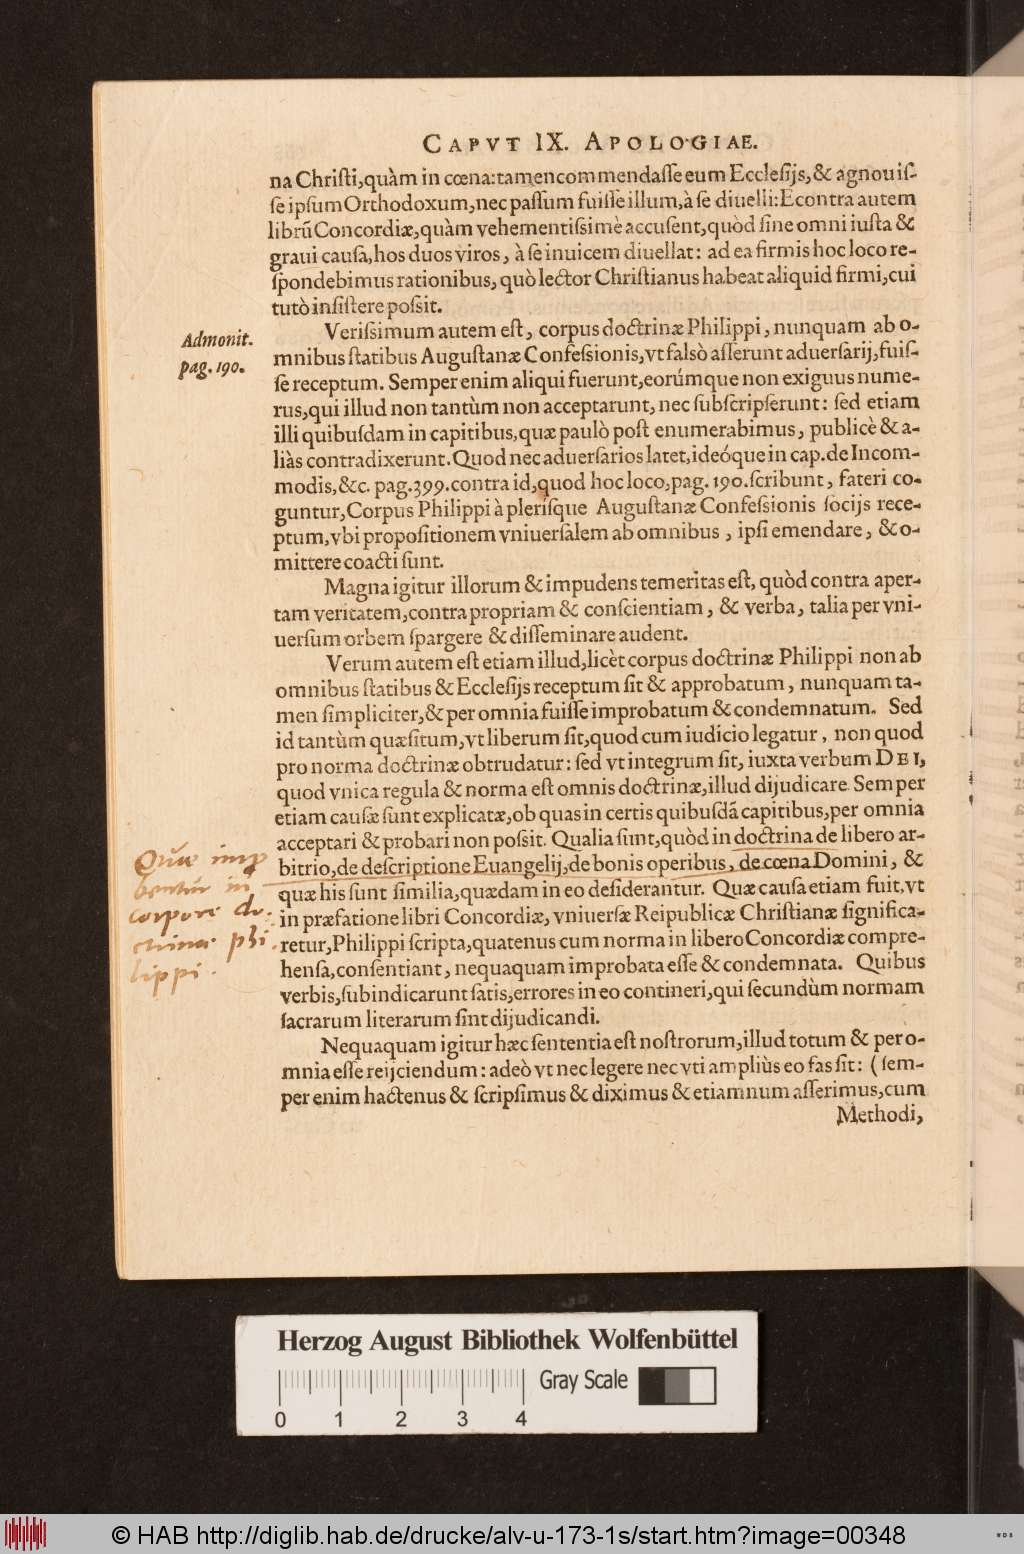 CAPVT IX. APOLOGIAE.
na Chriſti,quàm in cœna:tamen commendaſſe eum Eccleſijs,& agnouiſ-
ſe ipſum Orthodoxum,nec paſſum fuiſſe illum,à ſe diuelli:Econtra autem
librū Concordiæ,quàm vehementiſsimè accuſent,quòd ſine omni iuſta &
graui cauſa,hos duos viros, à ſe inuicem diuellat: ad ea firmis hoc loco re-
ſpondebimus rationibus, quò lector Chriſtianus habeat aliquid firmi,cui
tutò inſiſtere poſsit.
Admonit.
pag. 190.
Veriſsimum autem eſt, corpus doctrinæ Philippi, nunquam ab o-
mnibus ſtatibus Auguſtanæ Confeſsionis,vt falsò aſſerunt aduerſarij,fuiſ-
ſe receptum. Semper enim aliqui fuerunt,eorúmque non exiguus nume-
rus,qui illud non tantùm non acceptarunt, nec ſubſcripſerunt: ſed etiam
illi quibuſdam in capitibus,quæ paulò poſt enumerabimus, publicè & a-
liàs contradixerunt. Quod nec aduerſarios latet,ideóque in cap.de Incom-
modis,&c. pag.399.contra id,quod hoc loco,pag.190.ſcribunt, fateri co-
guntur,Corpus Philippi à pleriſque Auguſtanæ Confeſsionis ſocijs rece-
ptum,vbi propoſitionem vniuerſalem ab omnibus, ipſi emendare, & o-
mittere coacti ſunt.
Magna igitur illorum & impudens temeritas eſt, quòd contra aper-
tam veritatem,contra propriam & conſcientiam, & verba, talia per vni-
uerſum orbem ſpargere & diſſeminare audent.
Verum autem eſt etiam illud,licèt corpus doctrinæ Philippi non ab
omnibus ſtatibus & Eccleſijs receptum ſit & approbatum, nunquam ta-
men ſimpliciter,& per omnia fuiſſe improbatum & condemnatum. Sed
id tantùm quæſitum,vt liberum ſit,quod cum iudicio legatur, non quod
pro norma doctrinæ obtrudatur: ſed vt integrum ſit, iuxta verbum DEI,
quod vnica regula & norma eſt omnis doctrinæ,illud dijudicare. Semper
etiam cauſæ ſunt explicatæ,ob quas in certis quibuſdā capitibus,per omnia
acceptari & probari non poſsit. Qualia ſunt,quòd in doctrina de libero ar-
bitrio,de deſcriptione Euangelij,de bonis operibus, de cœna Domini, &
quæ his ſunt ſimilia,quædam in eo deſiderantur. Quæ cauſa etiam fuit,vt
in præfatione libri Concordiæ, vniuerſæ Reipublicæ Chriſtianæ ſignifica-
retur,Philippi ſcripta,quatenus cum norma in libero Concordiæ compre-
henſa,conſentiant, nequaquam improbata eſſe & condemnata. Quibus
verbis,ſubindicarunt ſatis,errores in eo contineri,qui ſecundùm normam
ſacrarum literarum ſint dijudicandi.
in
corpore do-
ctrinæ phi
lippi.
Nequaquam igitur hæc ſententia eſt noſtrorum,illud totum & per o-
mnia eſſe reijciendum: adeò vt nec legere nec vti ampliùs eo fas ſit: (ſem-
per enim hactenus & ſcripſimus & diximus & etiamnum aſſerimus,cum
Methodi,
Herzog August Bibliothek Wolfenbüttel
Gray Scale
0 1 2 3 4
© HAB http://diglib.hab.de/drucke/alv-u-173-1s/start.htm?image=00348